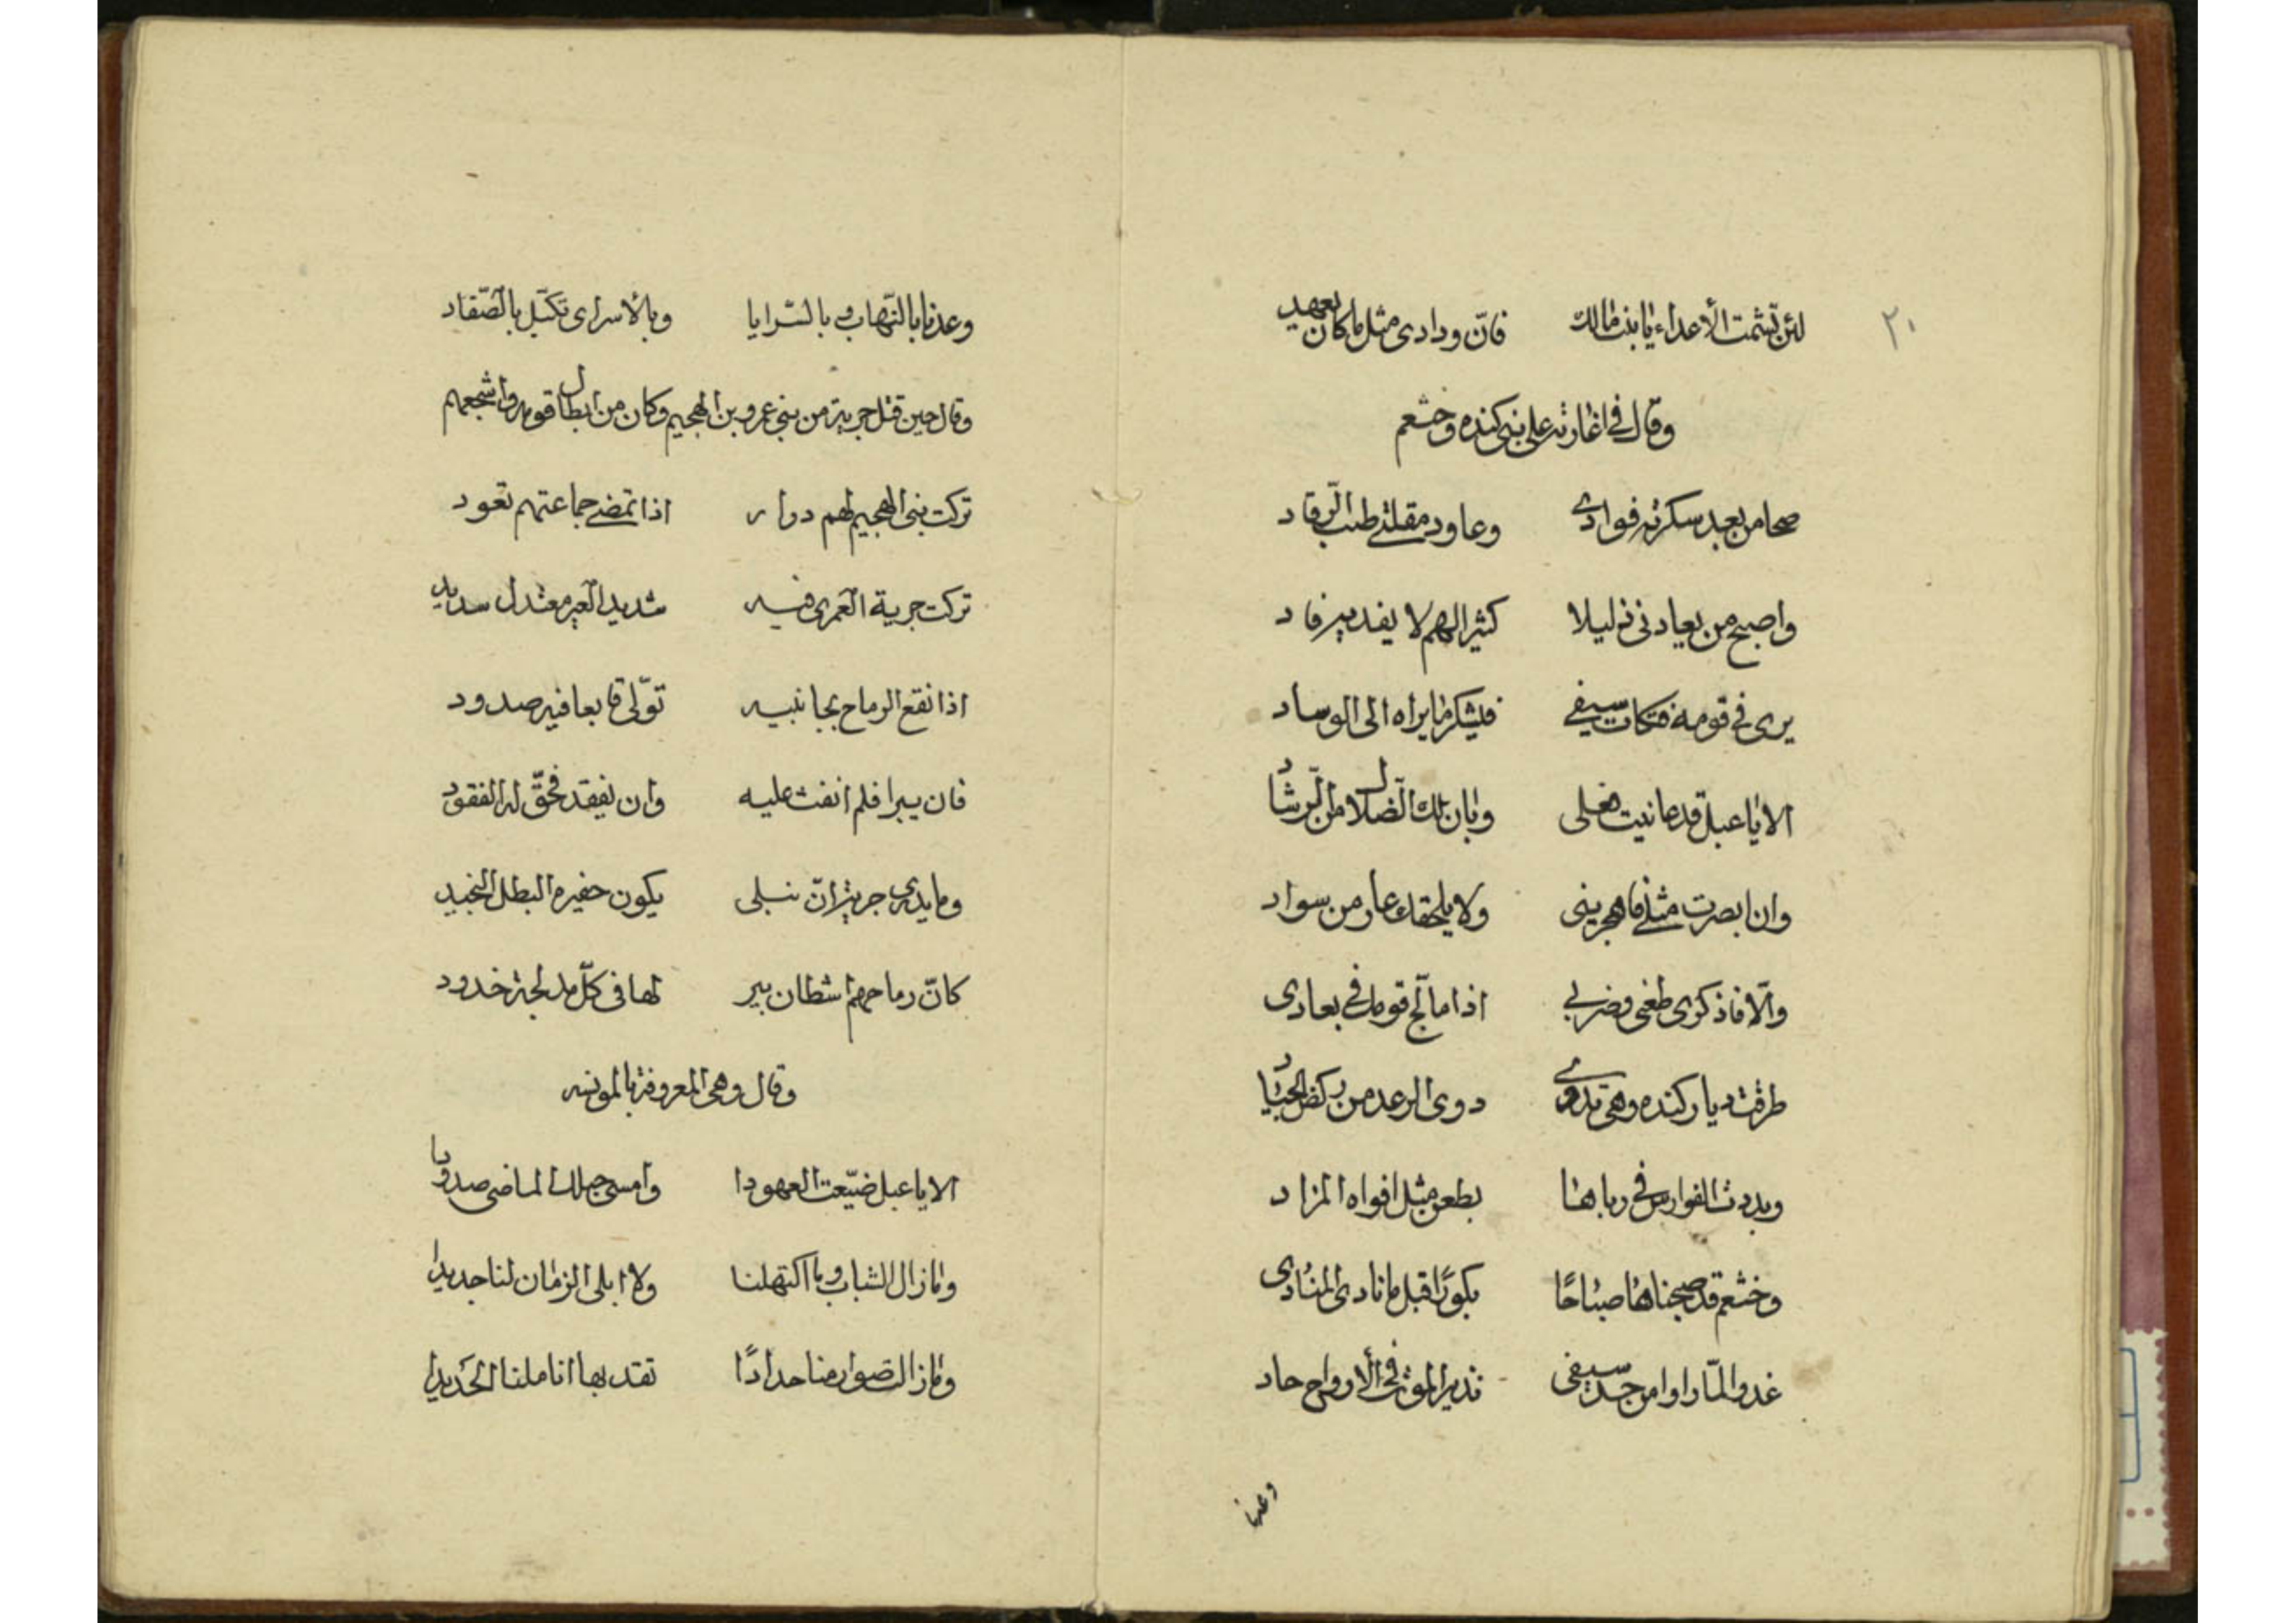 ٢٠
لئن تشمت الأعداء يا بنت مالك فانّ ودادى مثل ما كان يعهد
وقال فى اغارته على بنى كنده وخثعم
صحا من بعد سكرته فوادى وعاود مقلتى طيب الرّقاد
واصبح من يعادنى ذليلا كثير الهم لا يفديه فاد
يرى فى قومه فتكات سيفى فيشكر ما يراه الى الوساد
الا يا عبل قد عانيت فعلى وبان لك الضّلال من الرّشاد
وان ابصرت مثلى فاهجرينى ولا يلحقك عار من سواد
والّا فاذكرى طعنى وضربى اذا ما لّج قومك فى بعادى
طرقت ديار كنده وهى تدوى دوى الرعد من ركض الجياد
وبددت الفوارس فى رباها بطعن مثل افواه المزاد
وخثعم قد صبحناها صباحًا بكورًا قبل ما نادى المنادى
غدوا لمّا راوا من حد سيفى نذير الموت فى الأرواح حاد
وعدنا
وعدنا بالنّهاب وبالسّرايا وبالأسرى تكبّل بالصّفاد
وقال حين قتل جرية من بنى عمرو بن الهجيم وكان من ابطال قومه واشجعهم
تركت بنى الهجيم لهم دوار اذا تمضى جماعتهم تعود
تركت جرية العمرى فيه شديد العير معتدل سديد
اذا نقع الرماح بجانبيه تولّى قابعا فيه صدود
فان يبرا فلم انفث عليه وان يفقد فحقّ له الفقود
وما يدرى جرية انّ نبلى يكون حفيره البطل النجيد
كانّ رماحهم اشطان بير لها فى كلّ مدلجة خدود
وقال وهى المعروفة بالمونسه
الا يا عبل ضيّعت العهودا وامسى حبلك الماضى صدودا
وما زال الشباب وما اكتهلنا ولا ابلى الزمان لنا جديدا
وما زالت صوارمنا حدادًا تقد بها اناملنا الحديدا